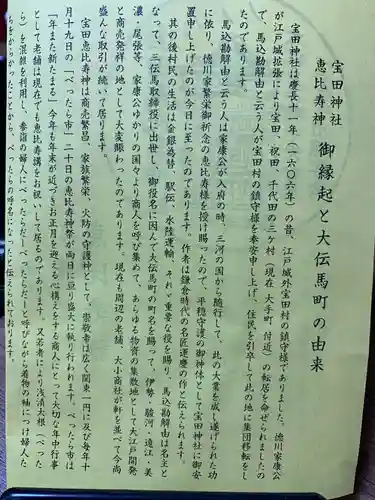 宝田神社
恵比寿神 御縁起と大伝馬町の由来
宝田神社は慶長十一年（一六〇六年）の昔、江戸城外宝田村の鎮守様でありました。徳川家康公
が江戸城拡張により宝田、祝田、千代田の三ケ村（現在 大手町 付近）の転居を命ぜられましたの
で、馬込勘解由と云う人が宝田村の鎮守様を奉安申し上げ、住民を引卒して此の地に集団移転をし
たのであります。
馬込勘解由と云う人は家康公が入府の時、三河の国から随行して、此の大業を成し遂げられた功
に依り、徳川家繁栄御祈念の恵比寿様を授け賜ったので、平穏守護の御神体として宝田神社に御安
置申し上げたのが今日に至ったのであります。作者は鎌倉時代の名匠運慶の作と伝えられます。
其の後村民の生活は金銀為替、駅伝、水陸運輸、それぞれ重要な役を賜り、馬込勘解由は名主と
なって、三伝馬取締役に出世し、御役名に因んで大伝馬町の町名を賜って、伊勢、駿河、遠江、美
濃、尾張等、家康公ゆかりの国々より商人を呼び集めて、あらゆる物資の集散地として大江戸開発
と商売発祥の地として大変賑わったのであります。現在も周辺の老舗、大小商社が軒を並べて今尚
盛んな取引が続いて居ります。
宝田恵比寿神は商売繁昌、家族繁栄、火防の守護神として、崇敬者は広く関東一円に及び毎年十
月十九日の「べったら市」二十日の恵比寿神祭が両日に亘り盛大に執り行われます。べったら市は
「年また新たまる」今も年末が近づきお正月を迎える心構えをする商人にとって大切な年中行事
として老舗は現在でも恵比寿講をお祝いして居るのであります。又若者により浅漬大根（べった
ら）を混雑を利用し、参詣の婦人にべったらだーべったらだーと呼びながら着物の袖につけ婦人た
ちをからかったことから、べったら市の呼名になったと伝えられております。